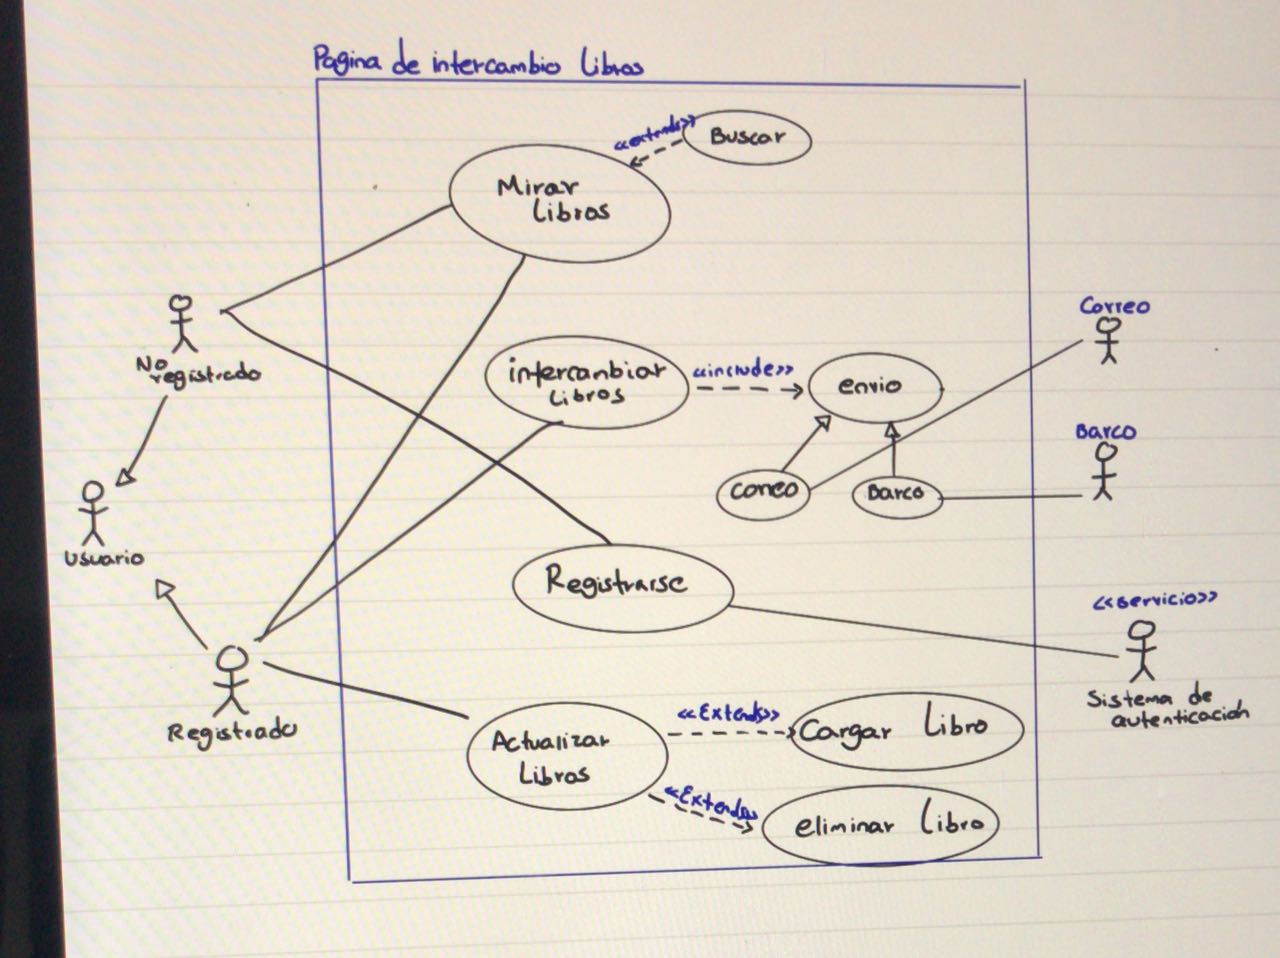 Pagina de intercambio Libros
<<extends>>
Buscar
Mirar
Libros
No
registrado
Correo
intercambiar
Libros
<<include>>
envio
Barco
correo
Barco
Usuario
Registrarse
<<servicio>>
Sistema de
autenticación
Registrado
Actualizar
Libros
<<Extends>>
Cargar Libro
<<Extends>>
eliminar Libro